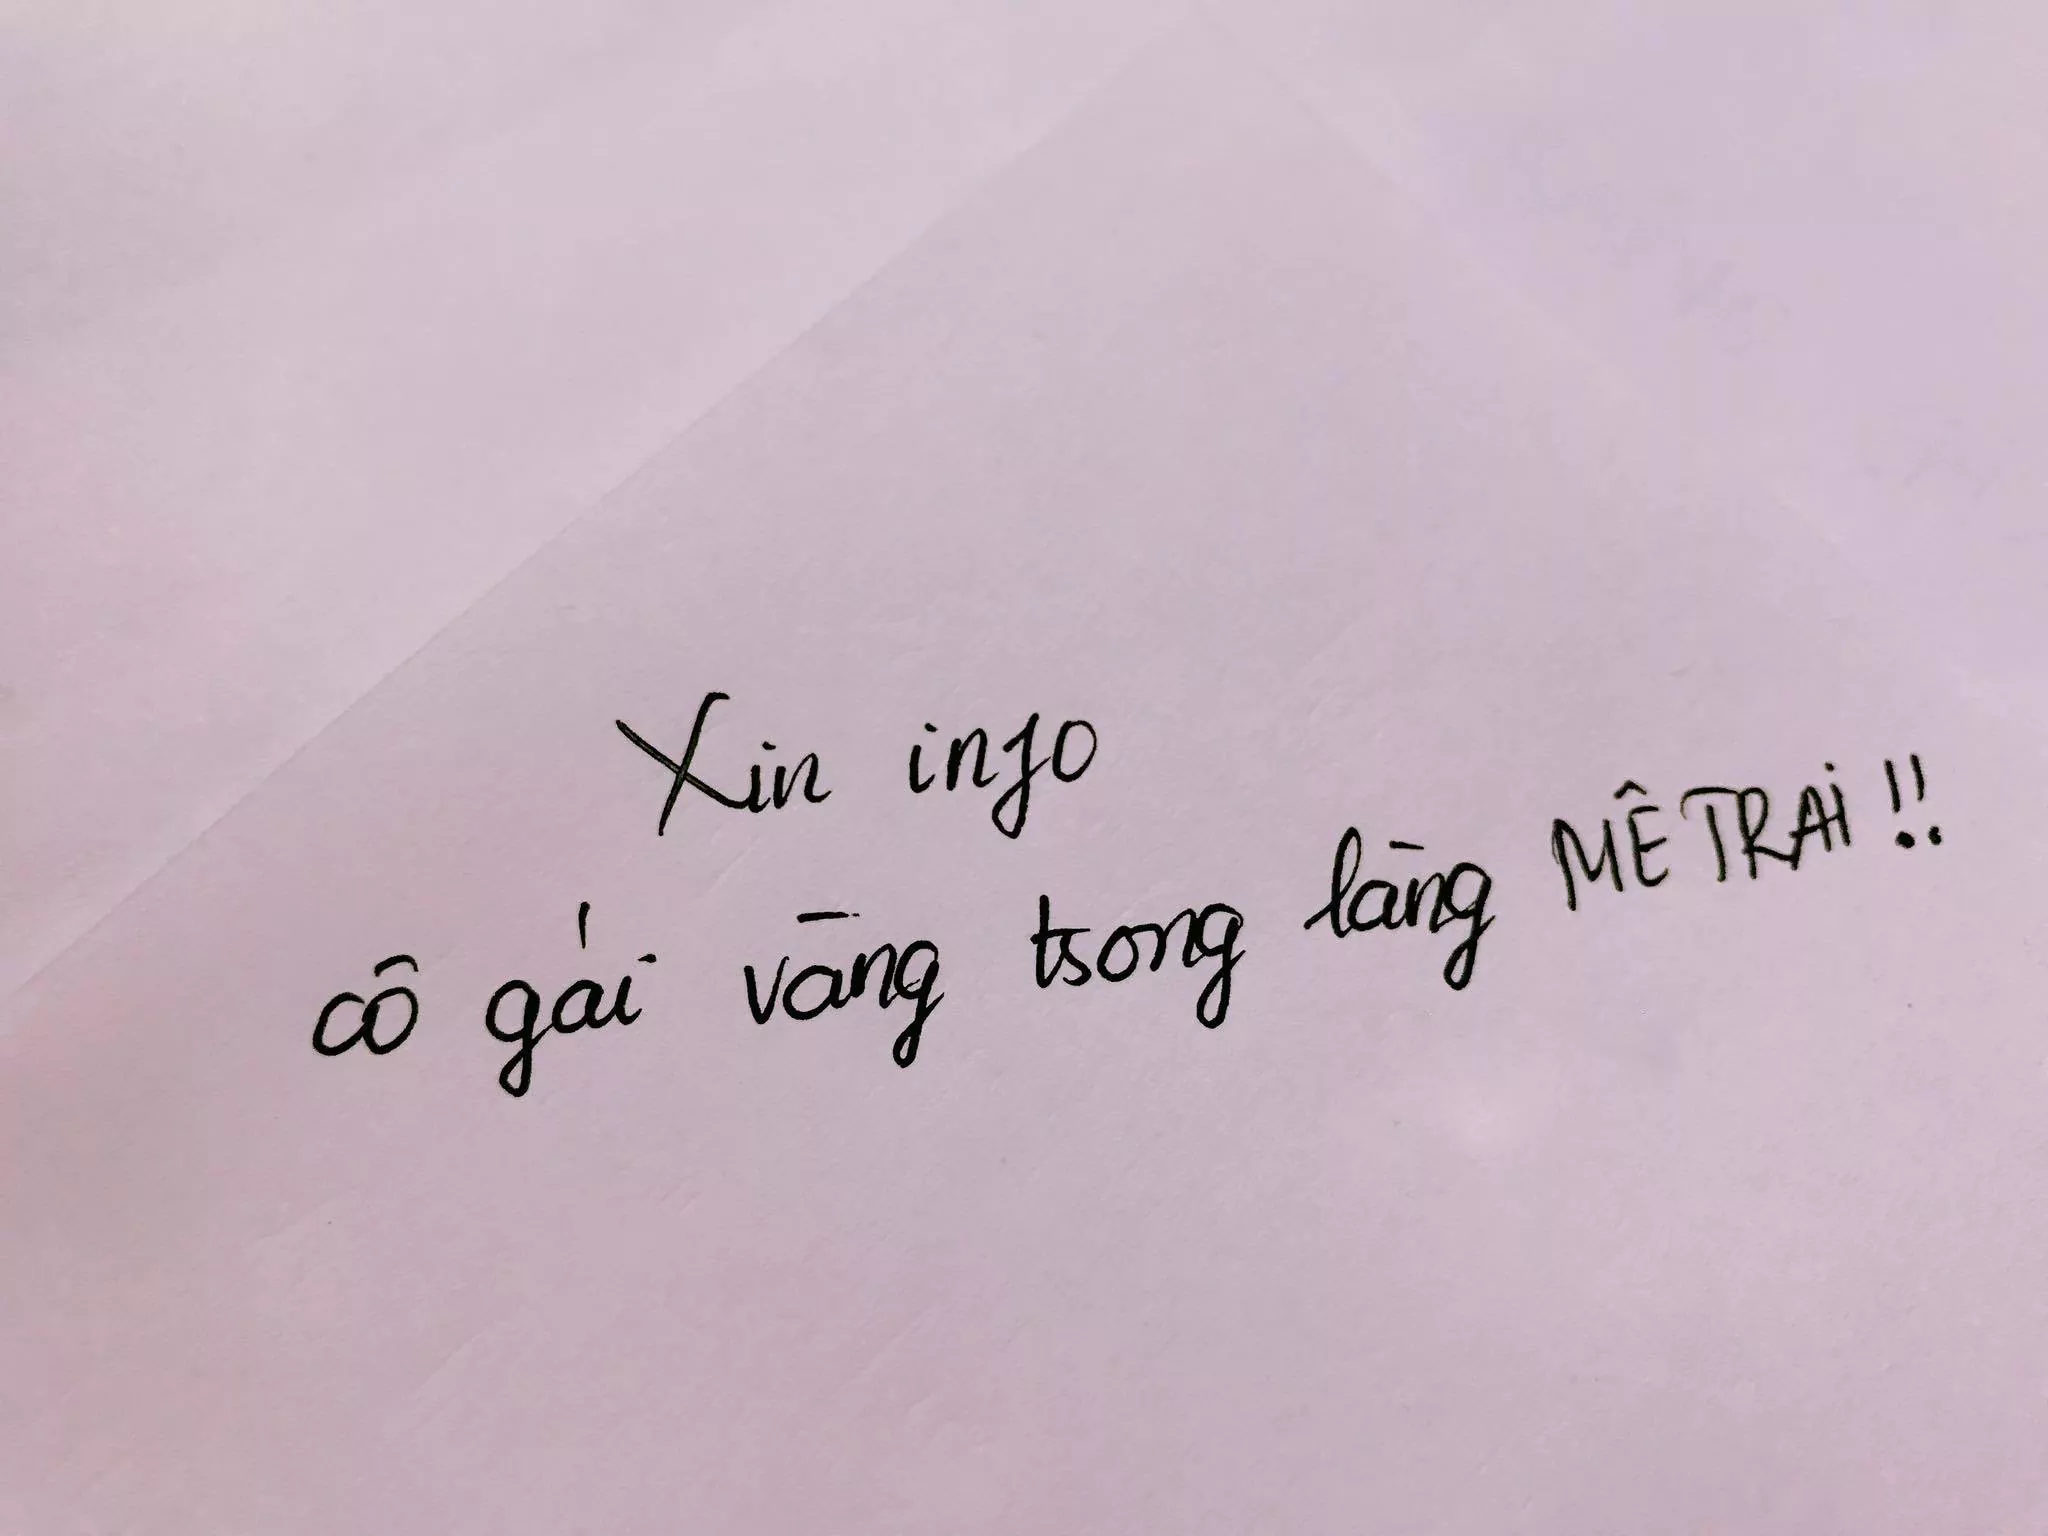 Xin info
cô gái vàng trong làng MÊ TRAi !!